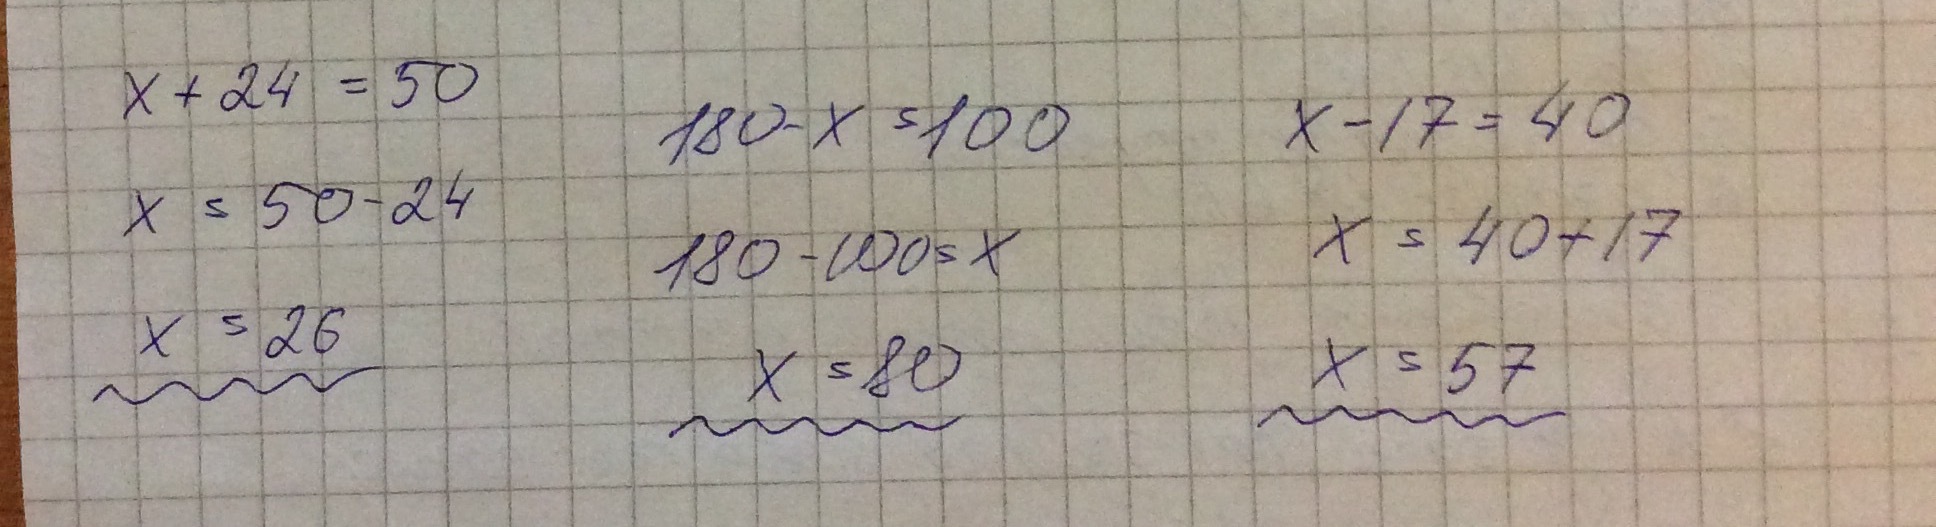 x + 24 = 50
x = 50 - 24
x = 26
180 - x = 100
180 - 100 = x
x = 80
x - 17 = 40
x = 40 + 17
x = 57